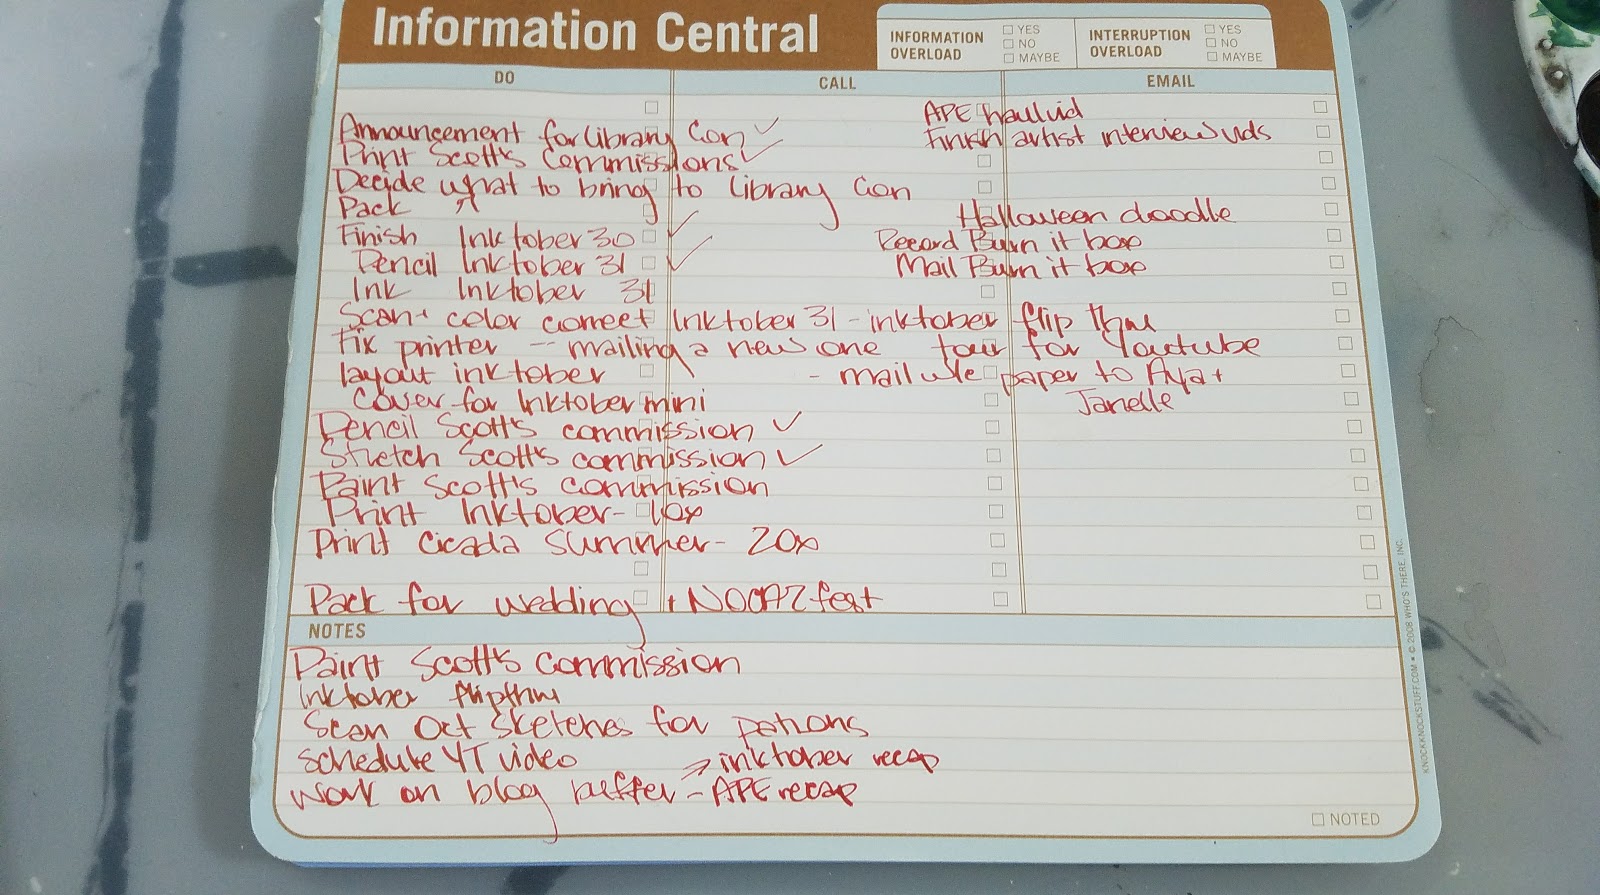 Information Central
INFORMATION OVERLOAD
YES
NO
MAYBE
INTERRUPTION OVERLOAD
YES
NO
MAYBE
DO
CALL
EMAIL
Announcement for Library Con ✓
Print Scott's Commissions ✓
Decide what to bring to Library Con
Pack
Finish Inktober 30 ✓
Pencil Inktober 31 ✓
Ink Inktober 31
Scan + color correct Inktober 31 - inktober flip thru
Fix printer -- mailing a new one
layout inktober
Cover for Inktober mini
Pencil Scott's commission ✓
Stretch Scott's commission ✓
Paint Scott's commission
Print Inktober - 10x
Print Cicada Summer - 20x
Pack for wedding + NOCAZ fest
APE haul vid
Finish artist interview vids
Halloween doodle
Record Burn it box
Mail Burn it box
tour for Youtube
- mail paper to Aya +
Janelle
NOTES
Paint Scott's Commission
Inktober flipthru
Scan Oct Sketches for patrons
Schedule YT video
Work on blog buffer - APE recap
→ inktober recap
NOTED
KNOCKKNOCKSTUFF.COM • © 2008 WHO'S THERE, INC.